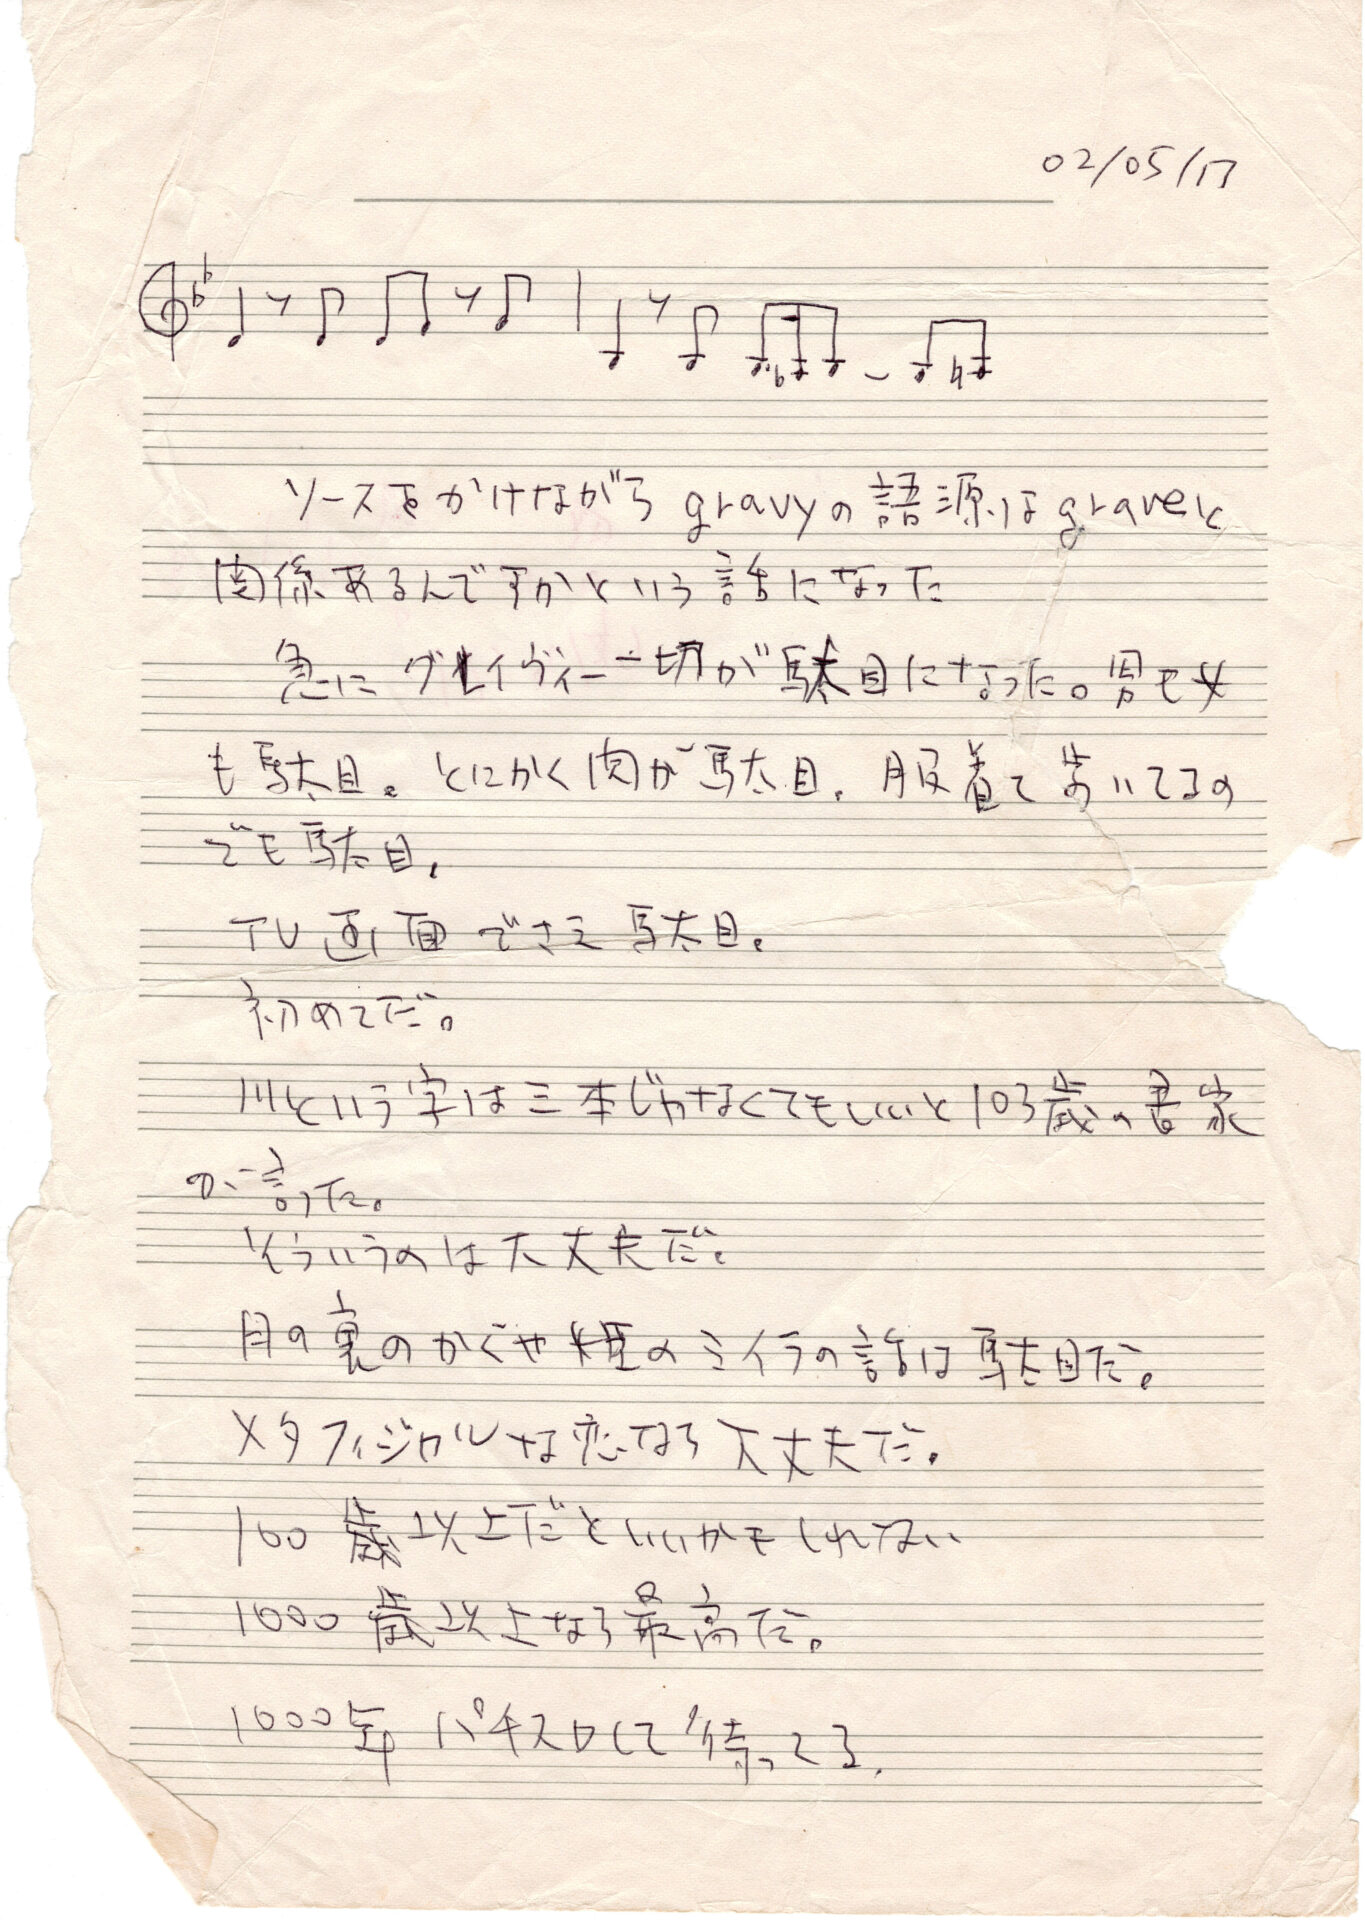 02/05/17
ソースをかけながら gravyの語源はgraveと
関係あるんですかという話になった
急にグレイヴィー一切が駄目になった。男も女
も駄目。とにかく肉が駄目。服着て歩いてるの
でも駄目。
TV画面でさえ駄目。
初めてだ。
川という字は三本じゃなくてもいいと103歳の書家
が言った。
そういうのは大丈夫だ。
月の裏のかぐや姫のミイラの話は駄目だ。
メタフィジカルな恋なら大丈夫だ。
100歳以上だといいかもしれない
1000歳以上なら最高だ。
1000年 パチスロして待ってる。